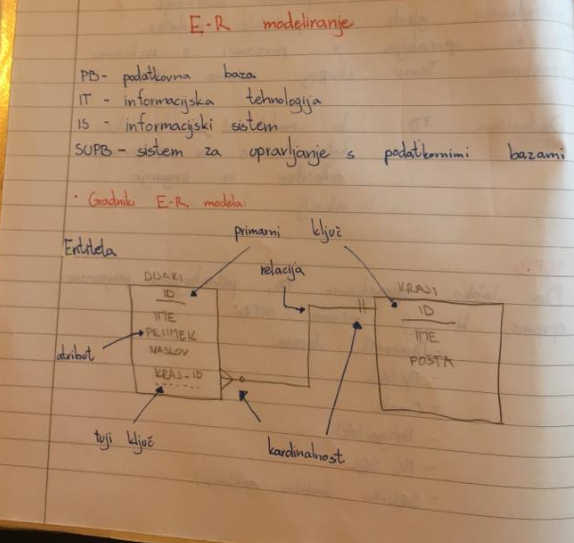 E-R modeliranje
PB - podatkovna baza
IT - informacijska tehnologija
IS - informacijski sistem
SUPB - sistem za upravljanje s podatkovnimi bazami
• Gradniki E-R modela:
primarni ključ
Entiteta
relacija
DIJAKI
ID
IME
PRIIMEK
NASLOV
KRAJ-ID
KRAJI
ID
IME
POŠTA
atribut
tuji ključ
kardinalnost